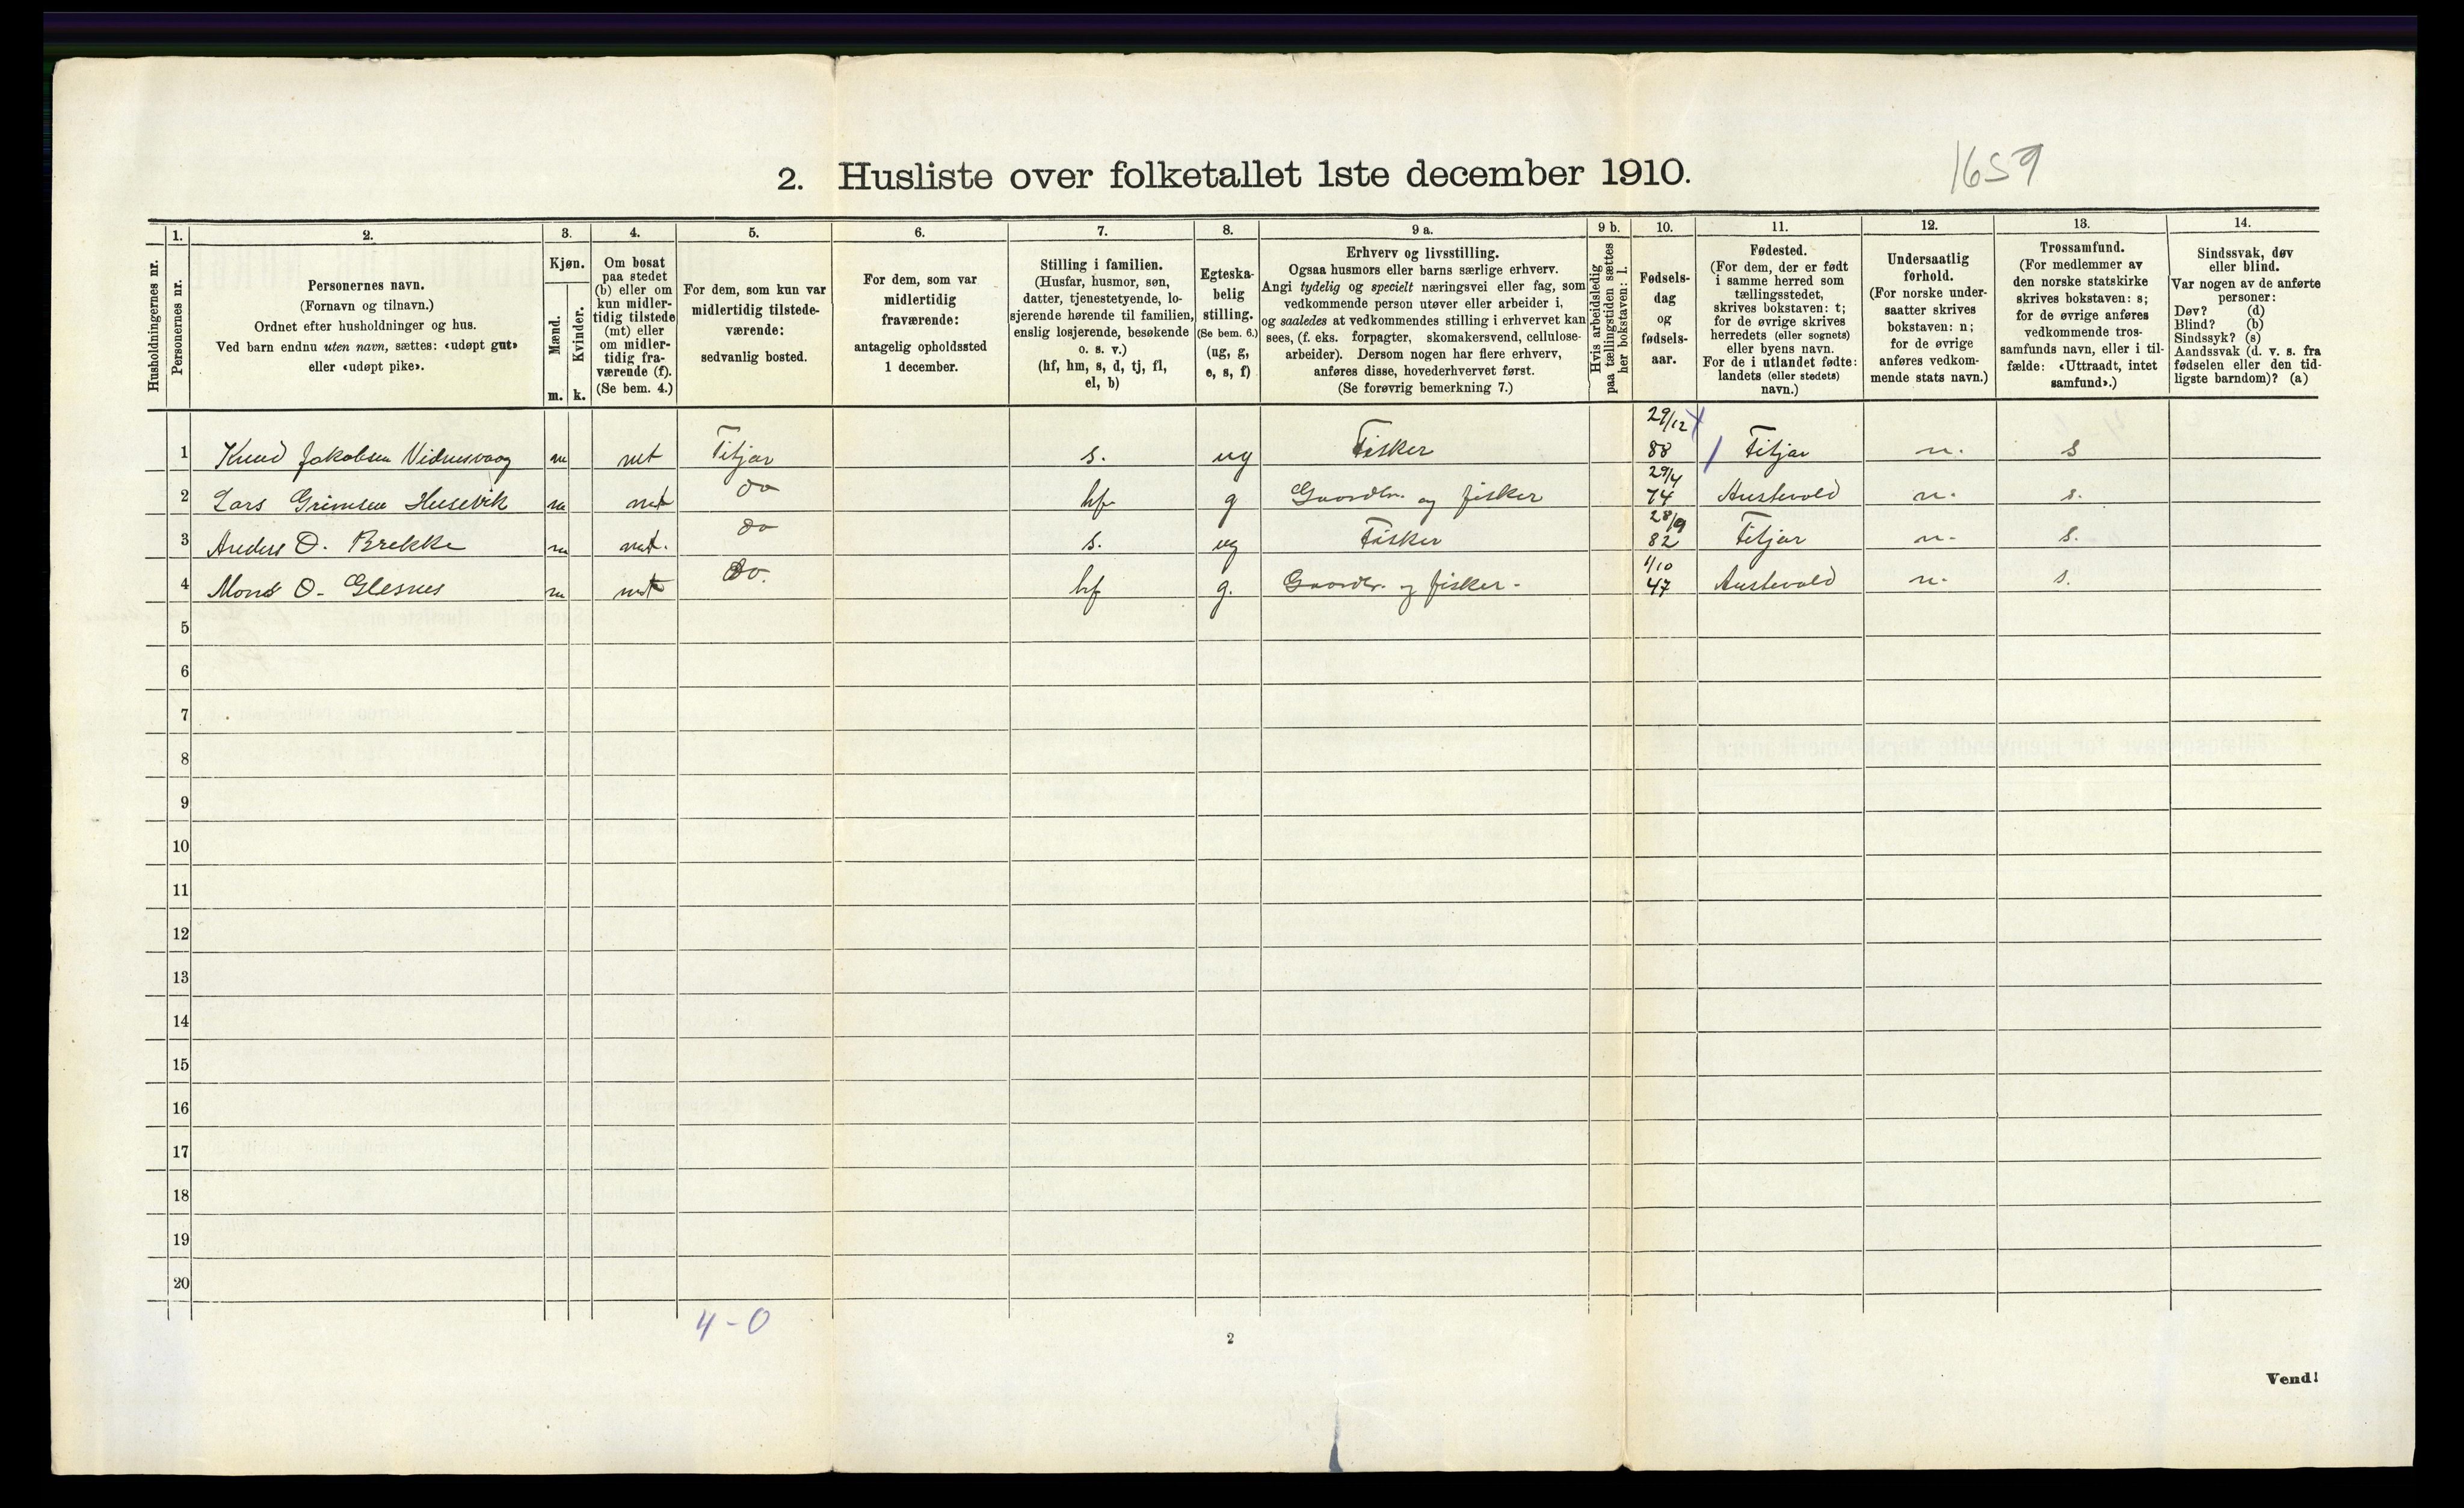 1659
2. Husliste over folketallet 1ste december 1910.
Husholdningernes nr.
1.
Personernes nr.
2.
Personernes navn.
(Fornavn og tilnavn.)
Ordnet efter husholdninger og hus.
Ved barn endnu uten navn, sættes: «udøpt gut»
eller «udøpt pike».
3.
Kjøn.
Mænd.
Kvinder.
m. k.
4.
Om bosat
paa stedet
(b) eller om
kun midler-
tidig tilstede
(mt) eller
om midler-
tidig fra-
værende (f).
(Se bem. 4.)
5.
For dem, som kun var
midlertidig tilstede-
værende:
sedvanlig bosted.
6.
For dem, som var
midlertidig
fraværende:
antagelig opholdssted
1 december.
7.
Stilling i familien.
(Husfar, husmor, søn,
datter, tjenestetyende, lo-
sjerende hørende til familien,
enslig losjerende, besøkende
o. s. v.)
(hf, hm, s, d, tj, fl,
el, b)
8.
Egteska-
belig
stilling.
(Se bem. 6.)
(ug, g,
e, s, f)
9 a.
Erhverv og livsstilling.
Ogsaa husmors eller barns særlige erhverv.
Angi tydelig og specielt næringsvei eller fag, som
vedkommende person utøver eller arbeider i,
og saaledes at vedkommendes stilling i erhvervet kan
sees, (f. eks. forpagter, skomakersvend, cellulose-
arbeider). Dersom nogen har flere erhverv,
anføres disse, hovederhvervet først.
(Se forøvrig bemerkning 7.)
9 b.
Hvis arbeidsledig
paa tællingstiden sættes
her bokstaven: l.
10.
Fødsels-
dag
og
fødsels-
aar.
11.
Fødested.
(For dem, der er født
i samme herred som
tællingsstedet,
skrives bokstaven: t;
for de øvrige skrives
herredets (eller sognets)
eller byens navn.
For de i utlandet fødte:
landets (eller stedets)
navn.)
12.
Undersaatlig
forhold.
(For norske under-
saatter skrives
bokstaven: n;
for de øvrige
anføres vedkom-
mende stats navn.)
13.
Trossamfund.
(For medlemmer av
den norske statskirke
skrives bokstaven: s;
for de øvrige anføres
vedkommende tros-
samfunds navn, eller i til-
fælde: «Uttraadt, intet
samfund».)
14.
Sindssvak, døv
eller blind.
Var nogen av de anførte
personer:
Døv? (d)
Blind? (b)
Sindssyk? (s)
Aandssvak (d. v. s. fra
fødselen eller den tid-
ligste barndom)? (a)
1 Knud Jakobsen Vidnesvaag m mt Fitjar s. ug Fisker 29/12 88 Fitjar n. s
2 Lars Grimsen Husevik m mt do hf g Gaardbr. og fisker 29/4 74 Austevold n. s.
3 Anders O. Brekke m mt. do s. ug Fisker 28/9 82 Fitjar n. s.
4 Mons O. Glesnes m mt do. hf g. Gaardbr. og fisker. 1/10 47 Austevold n. s.
5
6
7
8
9
10
11
12
13
14
15
16
17
18
19
20
4-0
2
Vend!